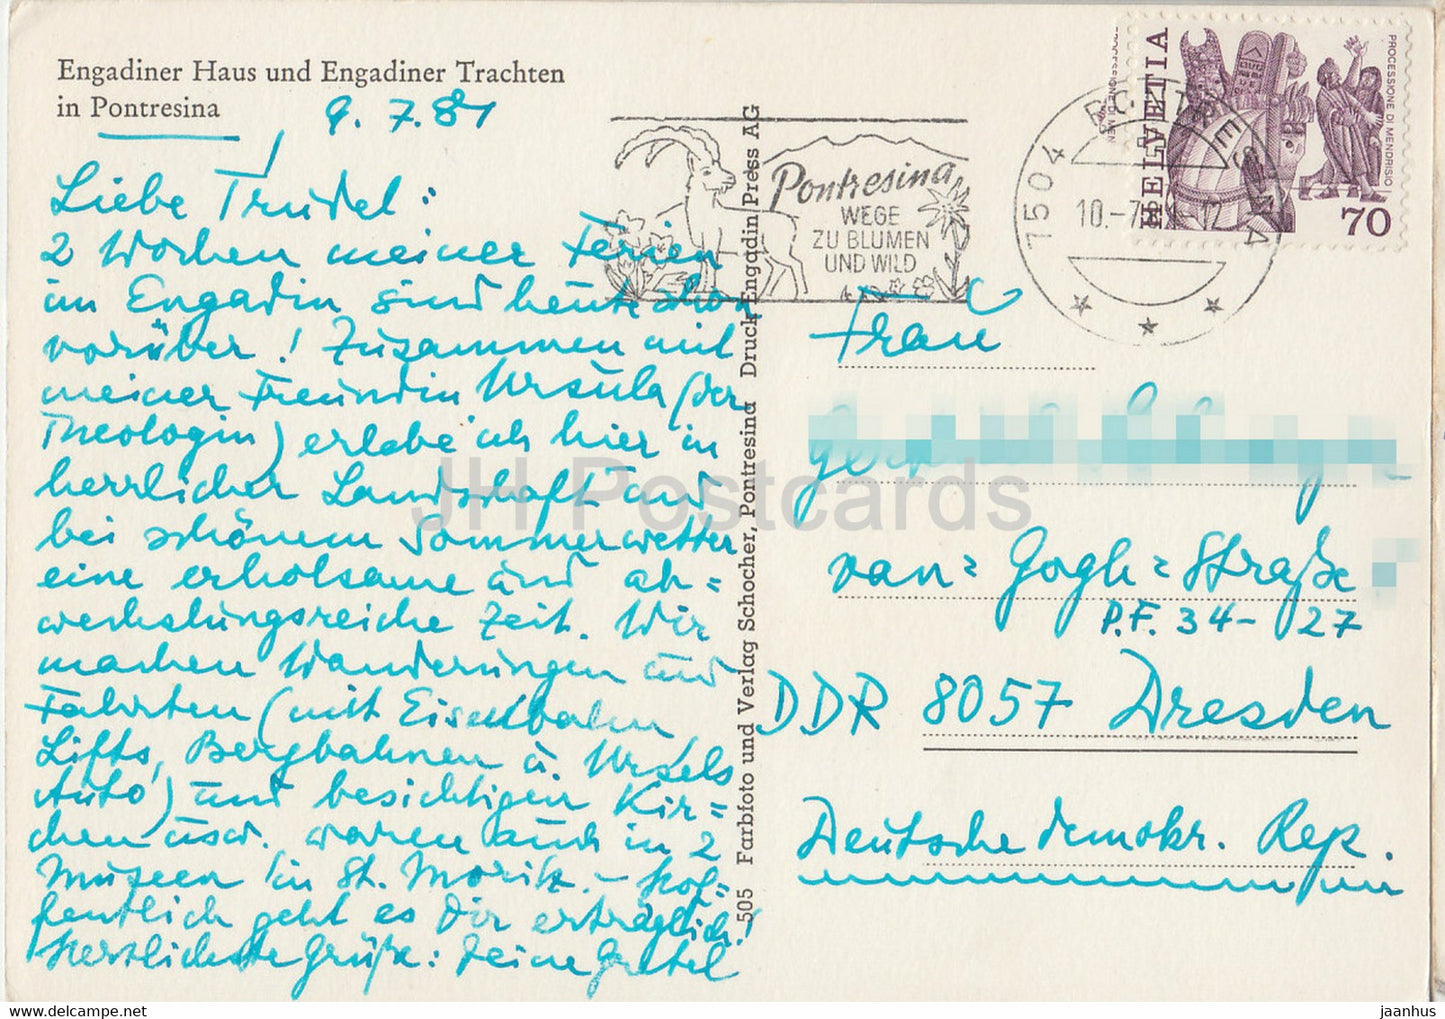 Engadiner Haus und Engadiner Trachten
in Pontresina
9. 7. 81
Liebe Trudel:
2 Wochen meiner Ferien
im Engadin sind heute schon
vorüber! Zusammen mit
meiner Freundin Ursula (der
Theologin) erlebe ich hier in
herrlicher Landschaft und
bei schönem Sommerwetter
eine erholsame und ab=
wechslungsreiche Zeit. Wir
machen Wanderungen und
Fahrten (mit Eisenbahn
Lifts, Bergbahnen u. Ursels
Auto) und besichtigen Kir=
chen usw. waren auch in 2
Museen in St. Moritz. - Hof=
fentlich geht es Dir erträglich!
Herzlichste Grüße: Deine Gretel
505 Farbfoto und Verlag Schocher, Pontresina Druck Engadin Press AG
Pontresina
WEGE
ZU BLUMEN
UND WILD
7504 PONTRESINA
10.-7.
12
HELVETIA
PROCESSIONE DI MENDRISIO
70
Frau
van=Gogh=Straße
P.F. 34-27
DDR 8057 Dresden
Deutsche demokr. Rep.
JH Postcards
https://www.delcampe.net
jaanhus